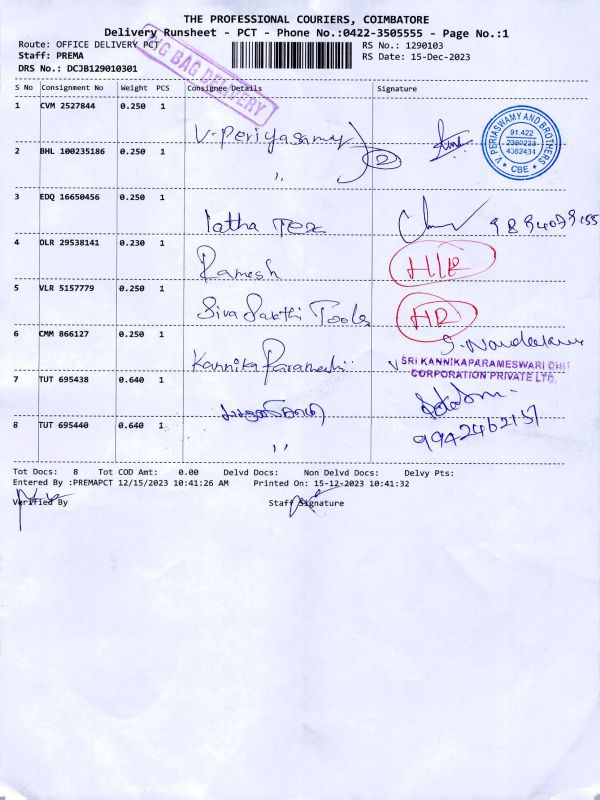 THE PROFESSIONAL COURIERS, COIMBATORE
Delivery Runsheet - PCT - Phone No.:0422-3505555 - Page No.:1
Route: OFFICE DELIVERY PCT
RS No.: 1290103
Staff: PREMA
RS Date: 15-Dec-2023
DRS No.: DCJB129010301
BIG BAG DELIVERY
S No Consignment No Weight PCS Consignee Details Signature
1 CVM 2527844 0.250 1 V. Periyasamy 2
V. PERIASWAMY AND BROTHERS
91.422
2380233
4362434
* CBE *
2 BHL 100235186 0.250 1 ,,
3 EDQ 16650456 0.250 1 latha Tex
4 OLR 29538141 0.230 1 Ramesh
5 VLR 5157779 0.250 1 Siva Sakthi Tools
6 CMM 866127 0.250 1 Kannika Parameshi
SRI KANNIKAPARAMESWARI CHIT
CORPORATION PRIVATE LTD.
7 TUT 695438 0.640 1
8 TUT 695440 0.640 1 ,,
Tot Docs: 8 Tot COD Amt: 0.00 Delvd Docs: Non Delvd Docs: Delvy Pts:
Entered By :PREMAPCT 12/15/2023 10:41:26 AM Printed On: 15-12-2023 10:41:32
Verified By Staff Signature